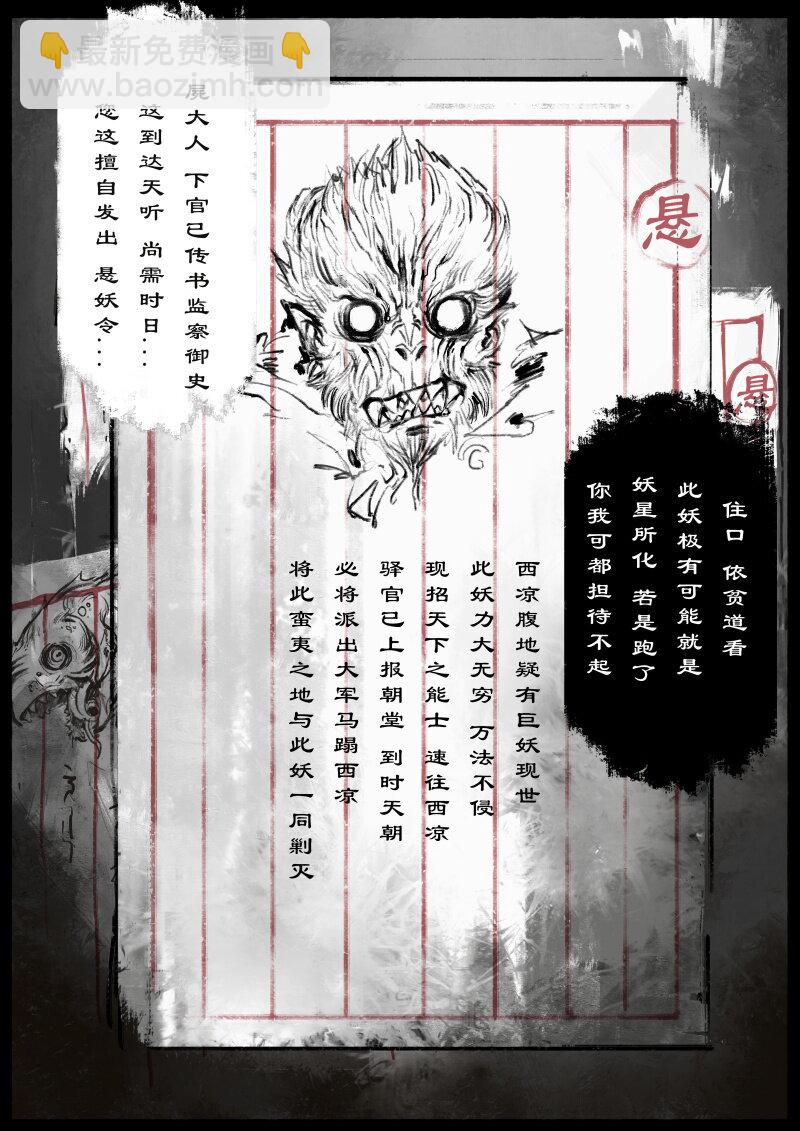 最新免费漫画
www.baozimh.com
屍大人 下官已传书监察御史
这到达天听 尚需时日...
您这擅自发出 悬妖令...
悬
悬
住口 依贫道看
此妖极有可能就是
妖星所化 若是跑了
你我可都担待不起
西凉腹地疑有巨妖现世
此妖力大无穷 万法不侵
现招天下之能士 速往西凉
驿官已上报朝堂 到时天朝
必将派出大军马蹋西凉
将此蛮夷之地与此妖一同剿灭